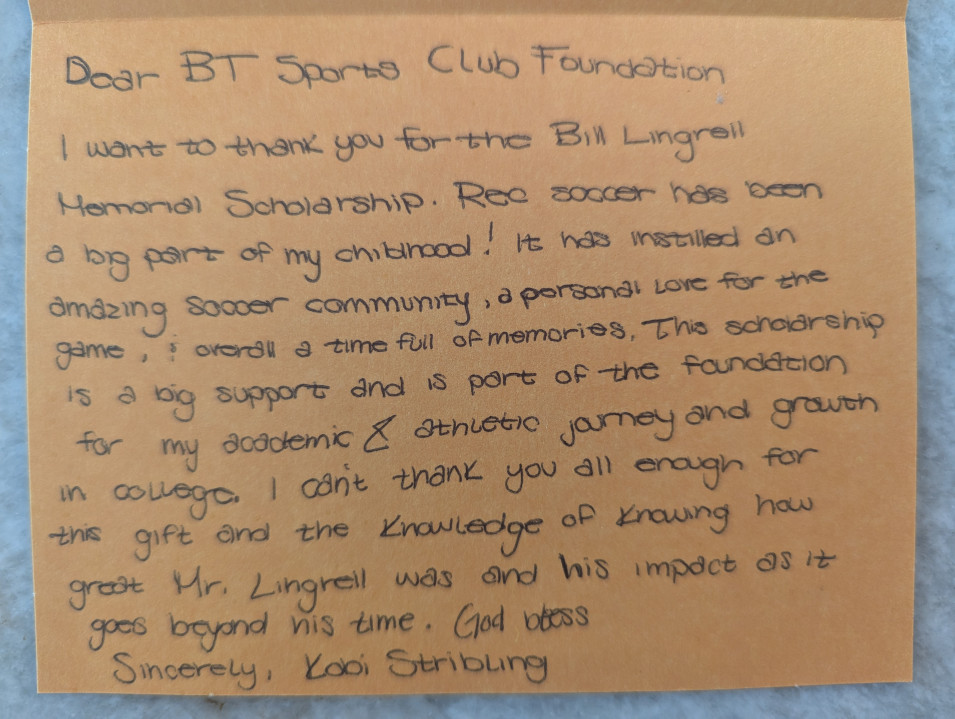 Dear BT Sports Club Foundation
I want to thank you for the Bill Lingrell
Memorial Scholarship. Rec soccer has been
a big part of my childhood! It has instilled an
amazing soccer community, a personal love for the
game, & overall a time full of memories. This scholarship
is a big support and is part of the foundation
for my academic & athletic journey and growth
in college. I can't thank you all enough for
this gift and the knowledge of knowing how
great Mr. Lingrell was and his impact as it
goes beyond his time. God bless
Sincerely, Kobi Stribling